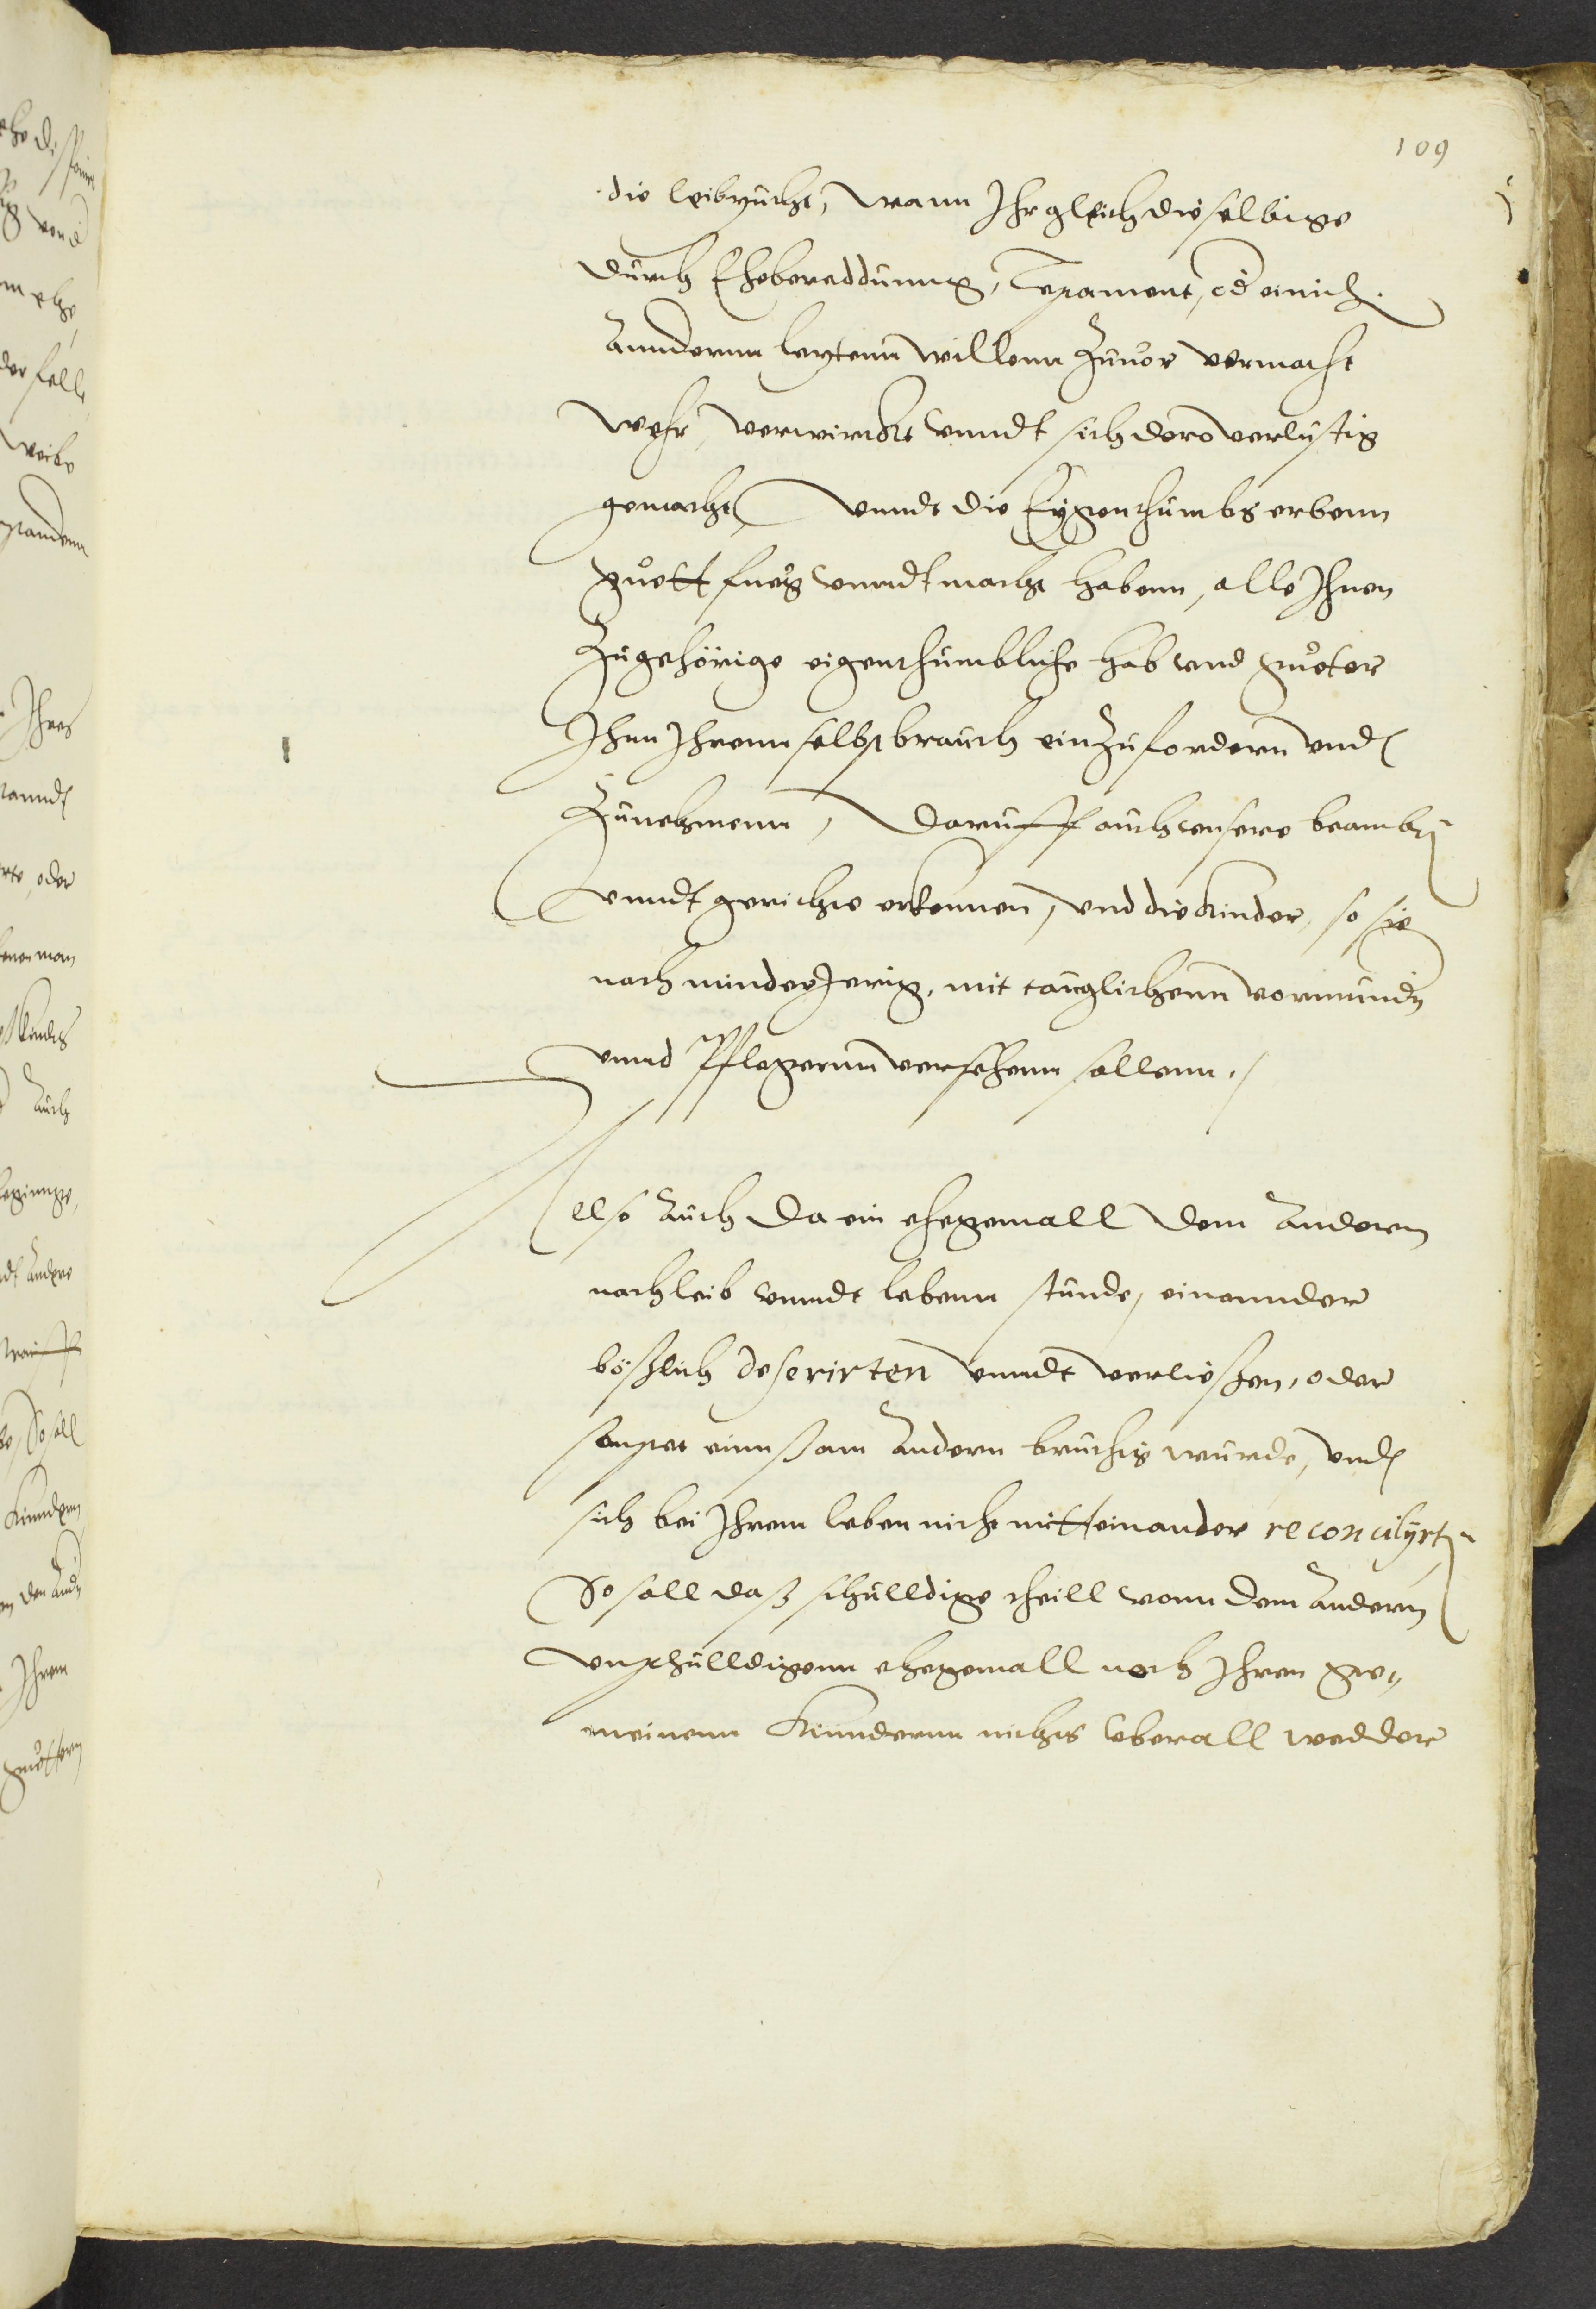 109
die leibzucht, wann Ihr gleich dieselbige
durch Ehebereddunng, Testament, od einich
Anndernn letztenn willenn Zuuor vermacht
wehr, verwirckt vnndt sich dero verlustig
gemacht, vnndt die Eygenthumbs erbenn
guott fueg vnndt macht habenn, alle Ihnen
Zugehörige eigenthumbliche hab vnd guoter
Ihnn Ihrenn selbst brauch ein Zufordern vnd
Zunehmenn, daruff auch vnsere beambtn
vnndt gerichte erkennen, vnd die Kinder, so sie
noch minderJerig, mit tauglichenn vormundn
vnnd Pflegernn versehenn sollenn.
Also Auch da ein ehegemall dem Anderen
nach leib vnndt lebenn stunde, einannder
bößlich deserirten vnndt verließen, oder
sonsten einnß am Andern bruchig wurde, vnd
sich bei Ihrem leben nicht mitt einander reconcilyrtn
So soll daß schulldige theill vonn dem Andernn
vnschulldigenn ehegemall noch Ihren ge„
meinenn Kinndernn nichts vberall wedder